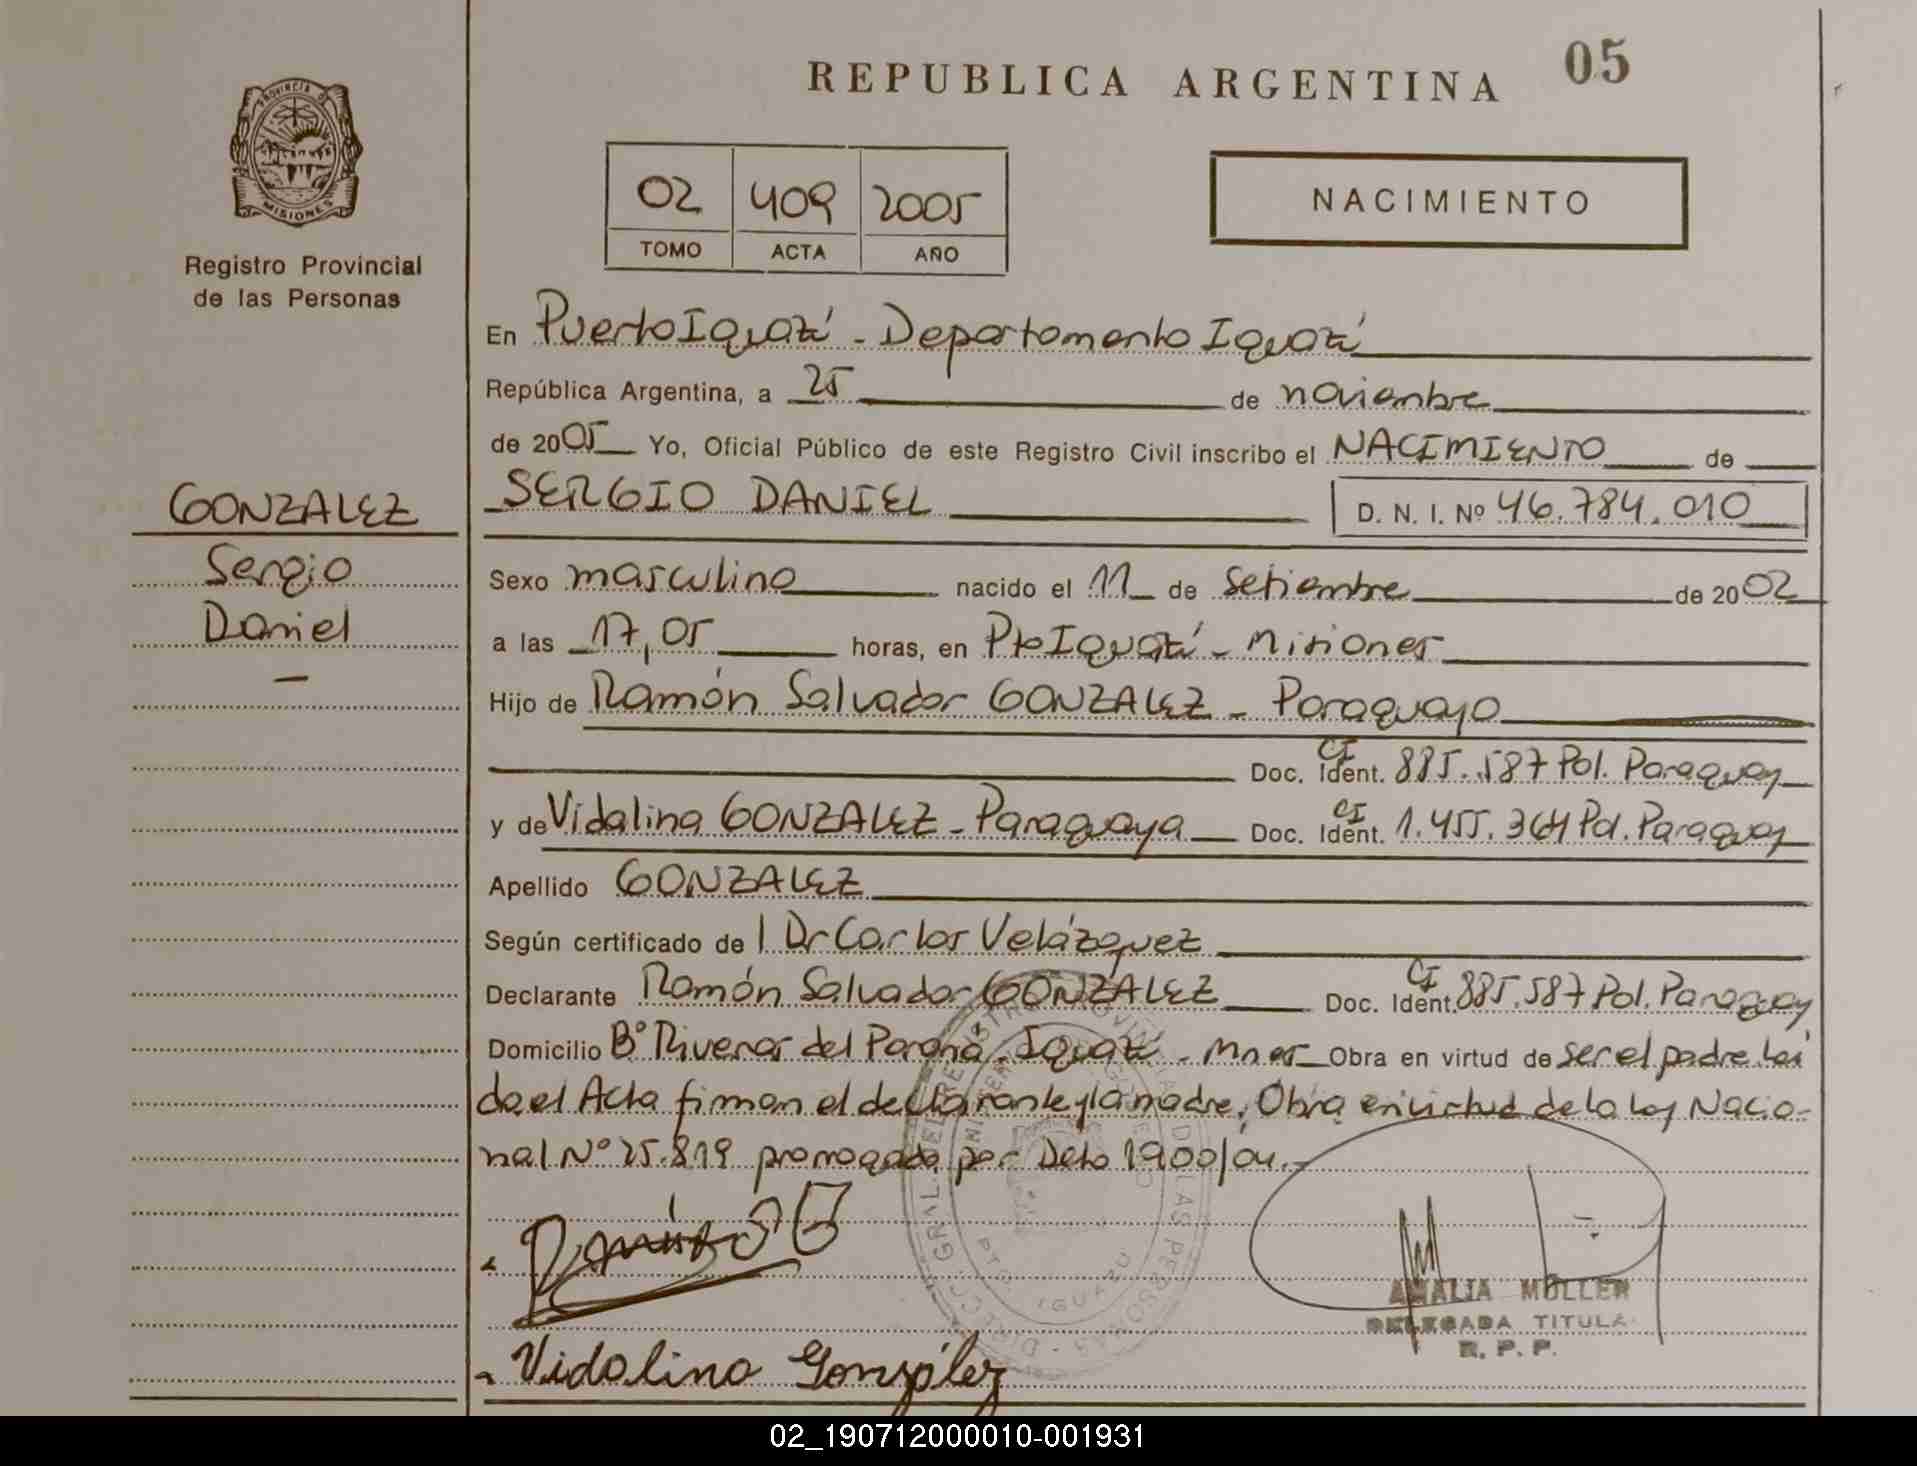 05
REPUBLICA ARGENTINA
PROVINCIA DE
MISIONES
Registro Provincial
de las Personas
02 409 2005
TOMO ACTA AÑO
NACIMIENTO
En Puerto Iguazú - Departamento Iguazú
República Argentina, a 25 de noviembre
de 2005 Yo, Oficial Público de este Registro Civil inscribo el NACIMIENTO de
SERGIO DANIEL D. N. I. Nº 46.784.010
GONZALEZ
Sergio
Daniel
-
Sexo masculino nacido el 11 de setiembre de 2002
a las 17,05 horas, en Pto Iguazú - Misiones
Hijo de Ramón Salvador GONZALEZ - Paraguayo
Doc. Ident. CI 885.587 Pol. Paraguay
y de Vidalina GONZALEZ - Paraguaya Doc. Ident. CI 1.455.364 Pol. Paraguay
Apellido GONZALEZ
Según certificado de l Dr Carlos Velázquez
Declarante Ramón Salvador GONZALEZ Doc. Ident. CI 885.587 Pol. Paraguay
Domicilio Bº Riveras del Paraná - Iguazú - Mnes Obra en virtud de ser el padre Leí
da el Acta firman el declarante y la madre, Obra en virtud de la Ley Nacio-
nal Nº 25.819 prorrogada por Dcto 1900/04.-
Vidalina González
AMALIA MÜLLER
DELEGADA TITULAR
R. P. P.
DIRECC. GRAL. DEL REGISTRO PROVINCIAL DE LAS PERSONAS
PTO. IGUAZU
02_190712000010-001931